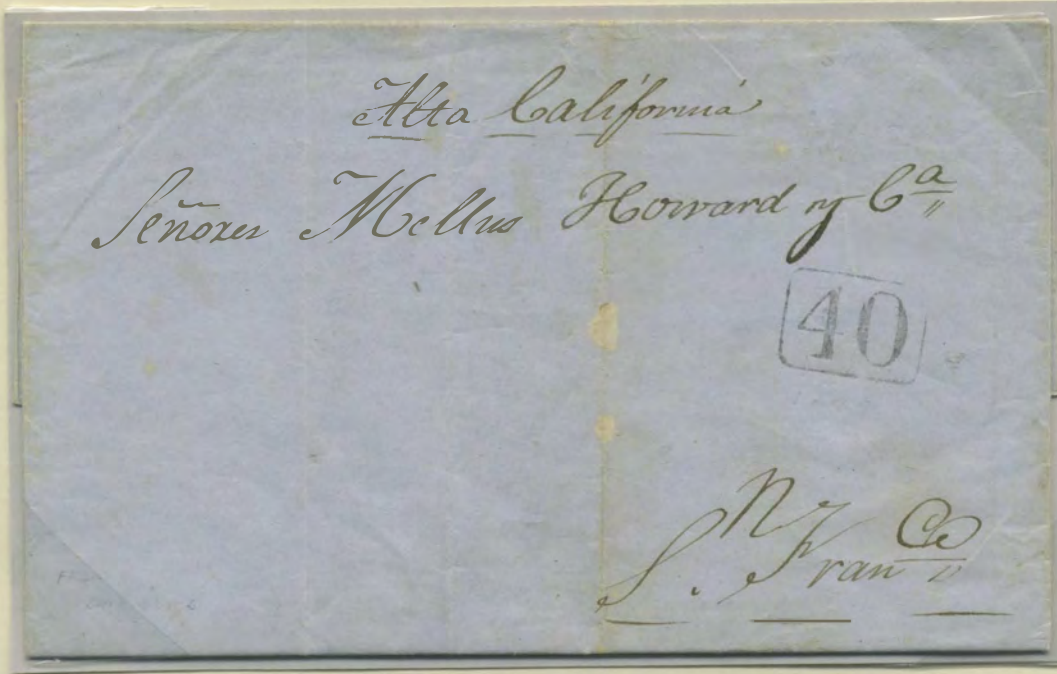 Alta California
Señores Mellus Howard y Cª
40
S.ⁿ Franᶜᵒ